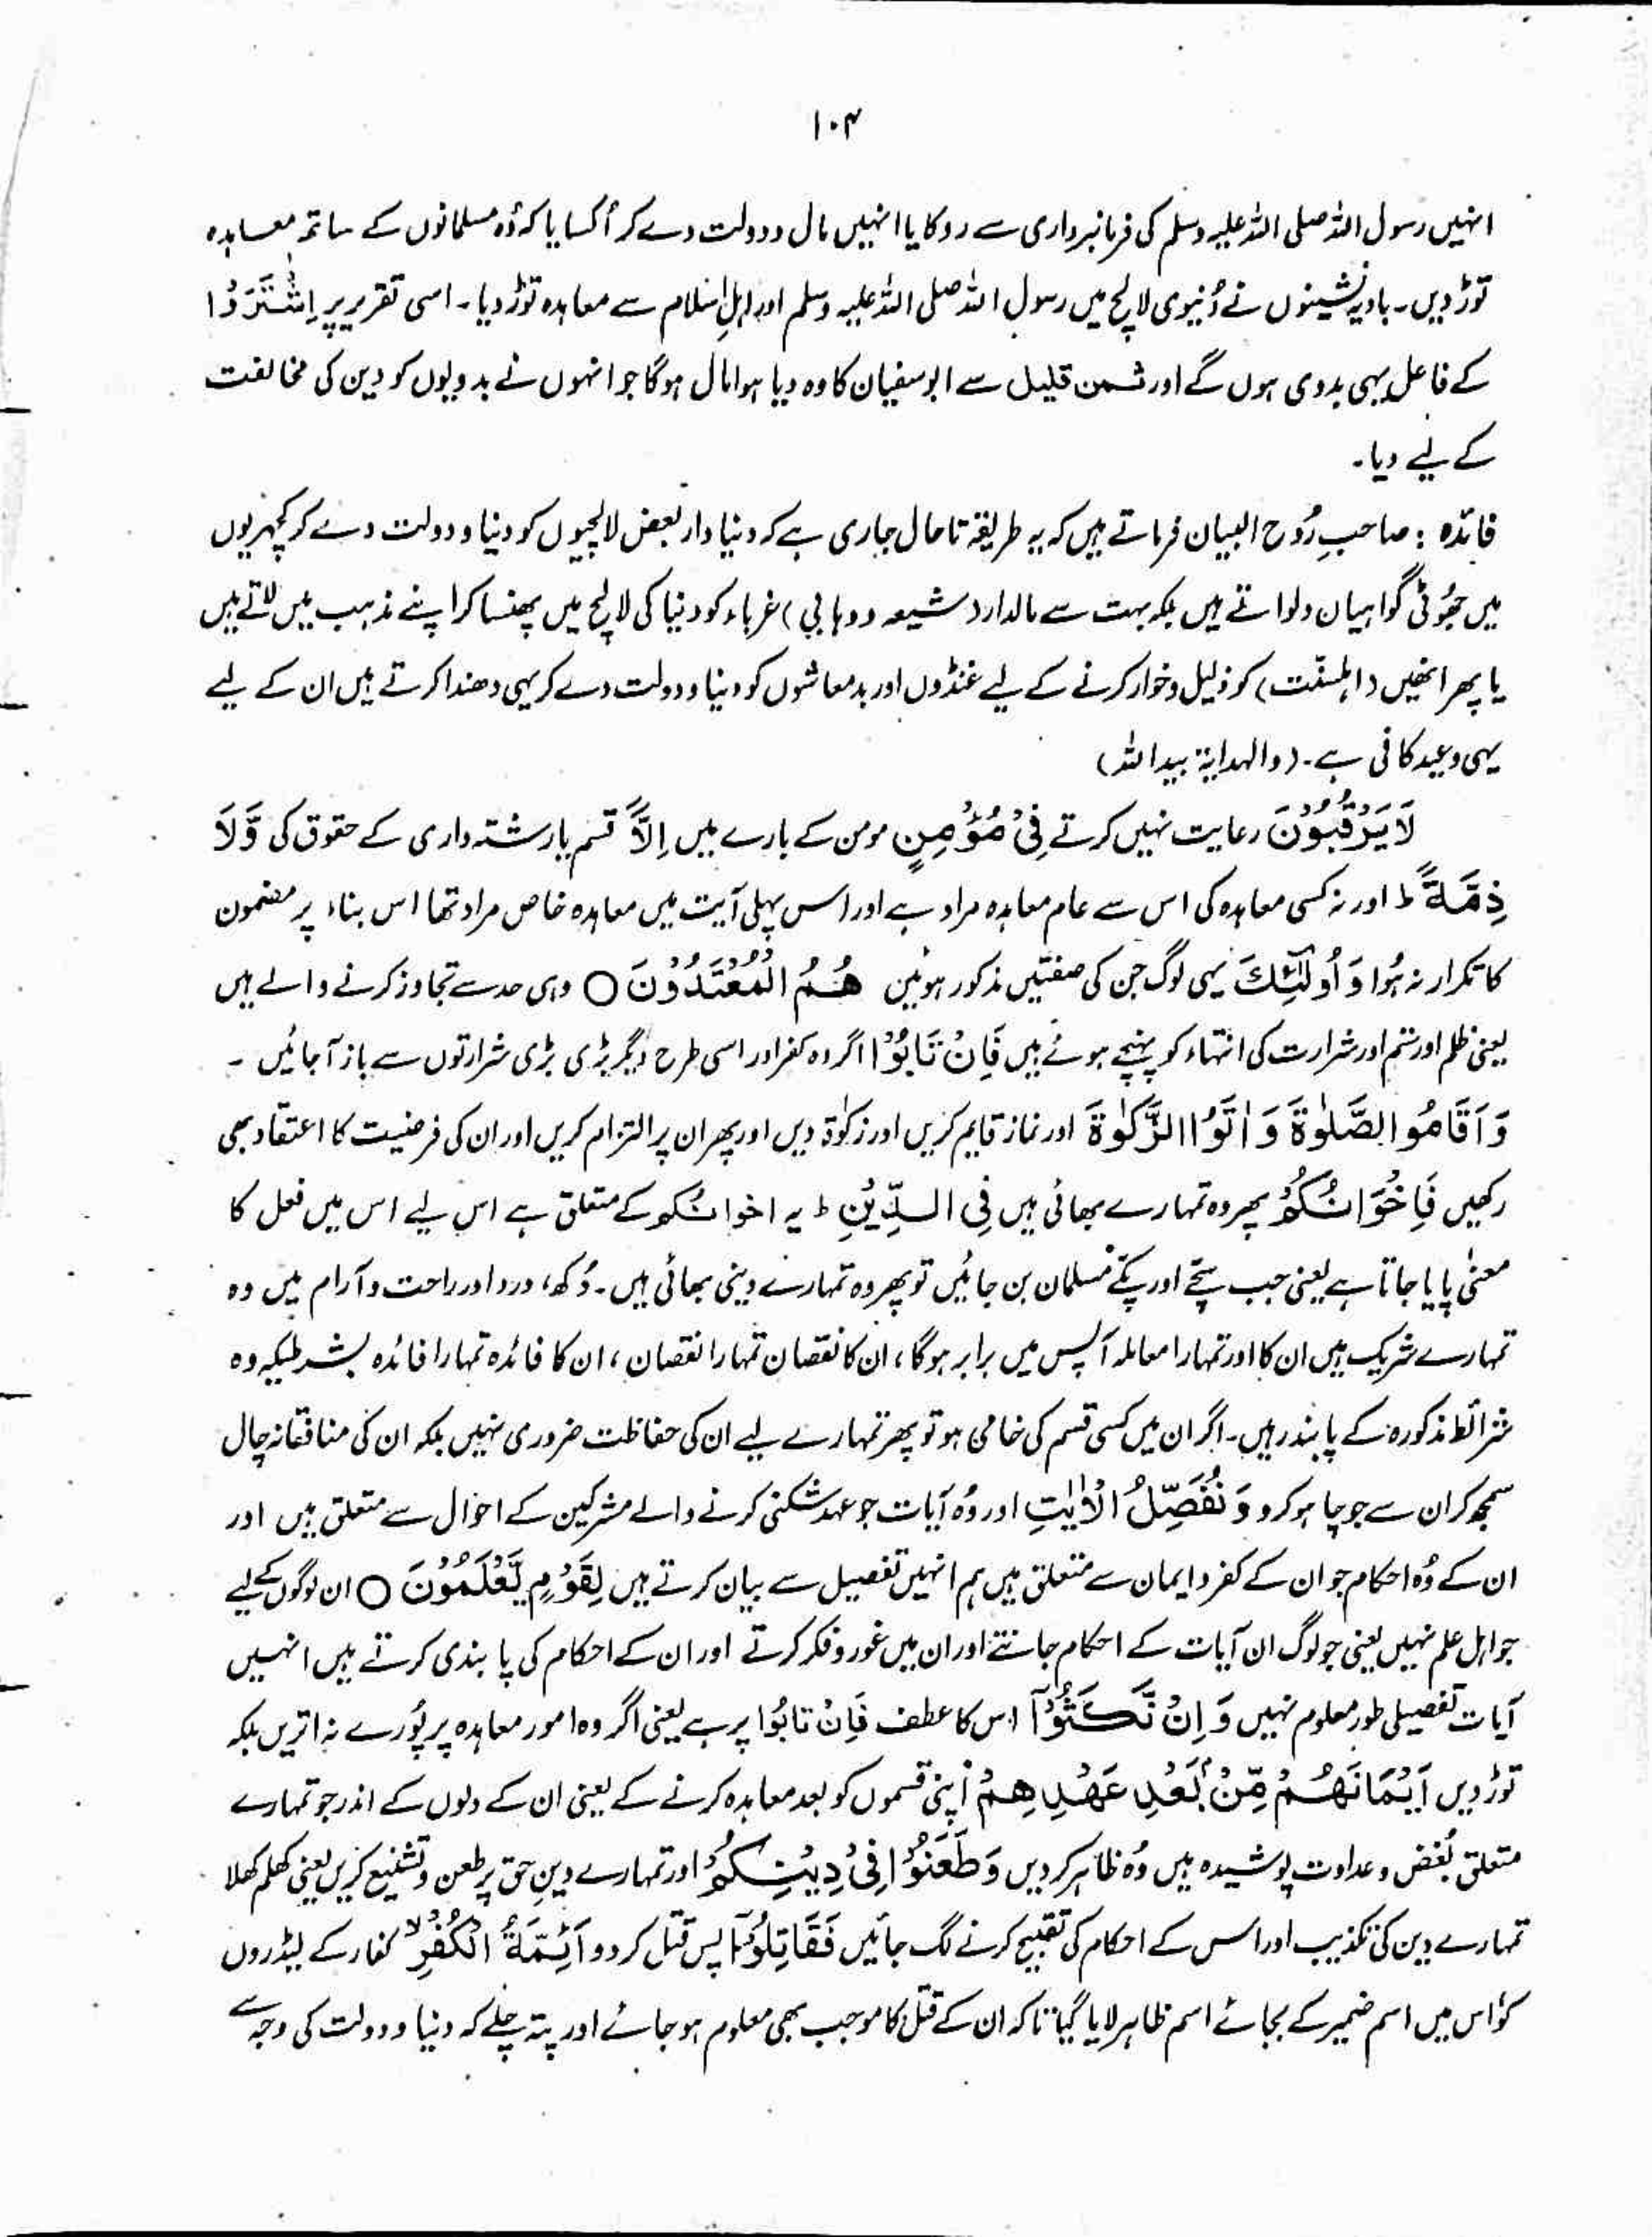 ۱۰۴
انہیں رسول اللہ صلی اللہ علیہ وسلم کی فرمانبرداری سے روکا یا انہیں مال و دولت دے کر اُکسایا کہ وُہ مسلمانوں کے ساتھ معاہدہ
توڑ دیں۔ بادیہ نشینوں نے دُنیوی لالچ میں رسول اللہ صلی اللہ علیہ وسلم اور اہلِ اسلام سے معاہدہ توڑ دیا۔ اسی تقریر پر اِشْتَرَوْا
کے فاعل یہی بدوی ہوں گے اور ثمن قلیل سے ابو سفیان کا وہ دیا ہوا مال ہوگا جو انہوں نے بدویوں کو دین کی مخالفت
کے لیے دیا۔
فائدہ : صاحبِ رُوح البیان فرماتے ہیں کہ یہ طریقہ تا حال جاری ہے کہ دنیا دار بعض لالچیوں کو دنیا و دولت دے کر کچہریوں
میں جھُوٹی گواہیاں دلواتے ہیں بلکہ بہت سے مالدار (شیعہ و وہابی) غرباء کو دنیا کی لالچ میں پھنسا کر اپنے مذہب میں لاتے ہیں
یا پھر انھیں (اہلسنّت) کو ذلیل و خوار کرنے کے لیے غنڈوں اور بدمعاشوں کو دنیا و دولت دے کر یہی دھندا کرتے ہیں ان کے لیے
یہی وعید کافی ہے۔ (والہدایۃ بید اللہ)
لَا یَرْقُبُوْنَ رعایت نہیں کرتے فِیْ مُؤْمِنٍ مومن کے بارے میں اِلًّا قسم یا رشتہ داری کے حقوق کی وَّلَا
ذِمَّۃً ط اور نہ کسی معاہدہ کی اس سے عام معاہدہ مراد ہے اور اس پہلی آیت میں معاہدہ خاص مراد تھا اس بناء پر مضمون
کا تکرار نہ ہُوا وَ اُولٰٓئِکَ یہی لوگ جن کی صفتیں مذکور ہوئیں ھُمُ الْمُعْتَدُوْنَ ○ وہی حد سے تجاوز کرنے والے ہیں
یعنی ظلم اور ستم اور شرارت کی انتہاء کو پہنچے ہوئے ہیں فَاِنْ تَابُوْا اگر وہ کفر اور اسی طرح دیگر بڑی بڑی شرارتوں سے باز آ جائیں ۔
وَ اَقَامُوا الصَّلٰوۃَ وَ اٰتَوُا الزَّکٰوۃَ اور نماز قایم کریں اور زکوٰۃ دیں اور پھر ان پر التزام کریں اور ان کی فرضیت کا اعتقاد بھی
رکھیں فَاِخْوَانُکُمْ پھر وہ تمہارے بھائی ہیں فِی الدِّیْنِ ط یہ اخوانکم کے متعلق ہے اس لیے اس میں فعل کا
معنٰی پایا جاتا ہے یعنی جب سچّے اور پکّے مسلمان بن جائیں تو پھر وہ تمہارے دینی بھائی ہیں۔ دُکھ، درد اور راحت و آرام میں وہ
تمہارے شریک ہیں ان کا اور تمہارا معاملہ آپس میں برابر ہوگا، ان کا نقصان تمہارا نقصان، ان کا فائدہ تمہارا فائدہ بشرطیکہ وہ
شرائط مذکورہ کے پابند رہیں۔ اگر ان میں کسی قسم کی خامی ہو تو پھر تمہارے لیے ان کی حفاظت ضروری نہیں بلکہ ان کی منافقانہ چال
سمجھ کر ان سے جو چاہو کرو وَ نُفَصِّلُ الْاٰیٰتِ اور وُہ آیات جو عہد شکنی کرنے والے مشرکین کے احوال سے متعلق ہیں اور
ان کے وُہ احکام جو ان کے کفر و ایمان سے متعلق ہیں ہم انہیں تفصیل سے بیان کرتے ہیں لِقَوْمٍ یَّعْلَمُوْنَ ○ ان لوگوں کے لیے
جو اہل علم نہیں یعنی جو لوگ ان آیات کے احکام جانتے اور ان میں غور و فکر کرتے اور ان کے احکام کی پابندی کرتے ہیں انہیں
آیات تفصیلی طور معلوم نہیں وَ اِنْ نَّکَثُوْآ اس کا عطف فَاِنْ تَابُوْا پر ہے یعنی اگر وہ امور معاہدہ پر پُورے نہ اتریں بلکہ
توڑ دیں اَیْمَانَھُمْ مِّنْۢ بَعْدِ عَھْدِھِمْ اپنی قسموں کو بعد معاہدہ کرنے کے یعنی ان کے دلوں کے اندر جو تمہارے
متعلق بُغض و عداوت پوشیدہ ہیں وُہ ظاہر کر دیں وَطَعَنُوْا فِیْ دِیْنِکُمْ اور تمہارے دینِ حق پر طعن و تشنیع کریں یعنی کھلم کھلا
تمہارے دین کی تکذیب اور اس کے احکام کی تقبیح کرنے لگ جائیں فَقَاتِلُوْآ پس قتل کر دو اَئِمَّۃَ الْکُفْرِ لا کفار کے لیڈروں
کو اس میں اسم ضمیر کے بجائے اسم ظاہر لایا گیا تاکہ ان کے قتل کا موجب بھی معلوم ہو جائے اور پتہ چلے کہ دنیا و دولت کی وجہ سے